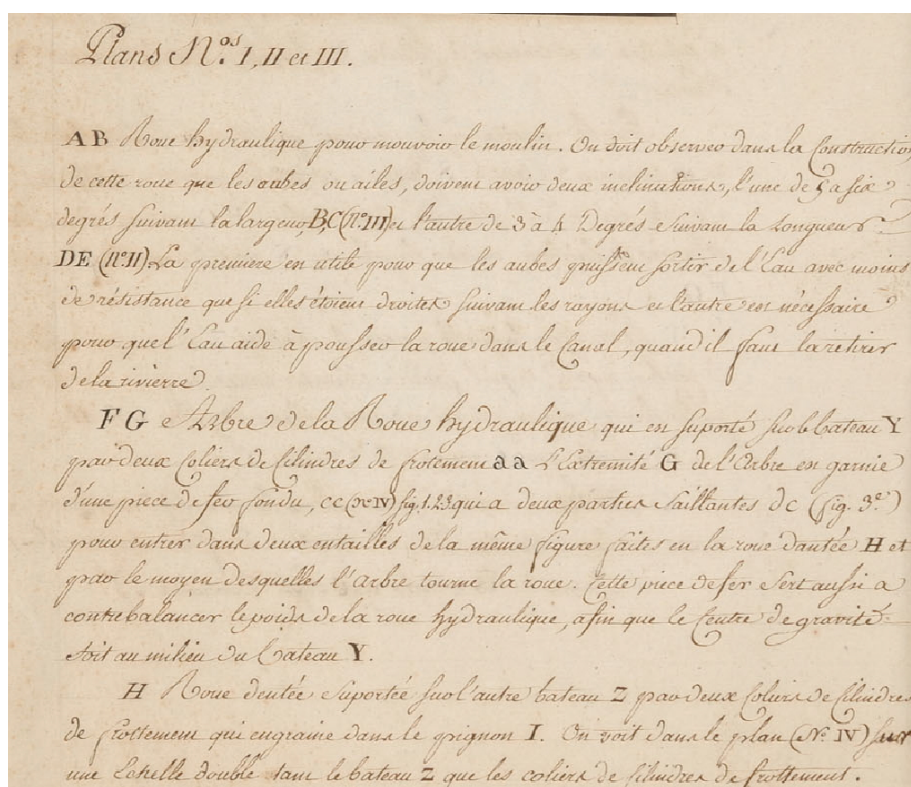 Plans N.os I, II et III.
AB Roue hydraulique pour mouvoir le moulin. On doit observer dans la Construction
de cette roue que les aubes ou ailes, doivent avoir deux inclinations, l'une de 5 a six
degrés suivant la largeur, B,C (nº III) et l'autre de 3 à 4 Degrés suivant la Longueur
DE (nº II). La premiere est utile pour que les aubes puissent sortir de l'Eau avec moins
de résistance que si elles étoient droites suivant les rayons et l'autre est nécessaire
pour que l'Eau aide à pousser la roue dans le Canal, quand il faut la retirer
de la rivierre.
FG Arbre de la Roue hydraulique qui est suporté sur le bateau Y
par deux Coliers de Cilindres de frotement aa L'Extremité G de l'Arbre est garnie
d'une piece de fer fondu, cc (Nº IV) fig. 1.2.3 qui a deux parties saillantes dc (fig. 3.e)
pour entrer dans deux entailles de la même figure faites en la roue dantée H et
par le moyen desquelles l'arbre tourne la roue. Cette piece de fer sert aussi a
contrebalancer le poids de la roue hydraulique, afin que le Centre de gravité
soit au milieu du bateau Y.
H Roue dentée suportée sur l'autre bateau Z par deux Coliers de Cilindres
de frottement qui engraine dans le pignon I. On voit dans le plan (Nº IV) sur
une Echelle double tant le bateau Z que les coliers de cilindres de frottement.